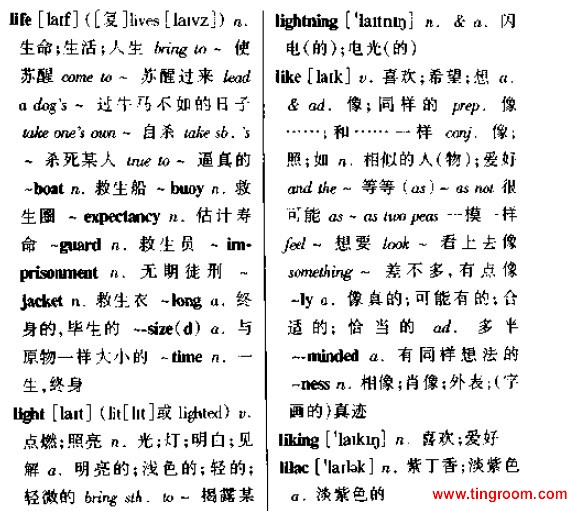 life [laɪf] ([复]lives [laɪvz]) n.
生命;生活;人生 bring to ~ 使
苏醒 come to ~ 苏醒过来 lead
a dog's ~ 过牛马不如的日子
take one's own ~ 自杀 take sb.'s
~ 杀死某人 true to ~ 逼真的
~boat n. 救生船 ~buoy n. 救
生圈 ~expectancy n. 估计寿
命 ~guard n. 救生员 ~im-
prisonment n. 无期徒刑 ~
jacket n. 救生衣 ~long a. 终
身的,毕生的 ~-size(d) a. 与
原物一样大小的 ~time n. 一
生,终身
light [laɪt] (lit[lɪt]或 lighted) v.
点燃;照亮 n. 光;灯;明白;见
解 a. 明亮的;浅色的;轻的;
轻微的 bring sth. to ~ 揭露某
lightning ['laɪtnɪŋ] n. & a. 闪
电(的);电光(的)
like [laɪk] v. 喜欢;希望;想 a.
& ad. 像;同样的 prep. 像
……;和……一样 conj. 像;
照;如 n. 相似的人(物);爱好
and the ~ 等等 (as) ~ as not 很
可能 as ~ as two peas 一模一样
feel ~ 想要 look ~ 看上去像
something ~ 差不多,有点像
~ly a. 像真的;可能有的;合
适的;恰当的 ad. 多半
~-minded a. 有同样想法的
~ness n. 相像;肖像;外表;(字
画的)真迹
liking ['laɪkɪŋ] n. 喜欢;爱好
lilac ['laɪlək] n. 紫丁香;淡紫色
a. 淡紫色的
www.tingroom.com